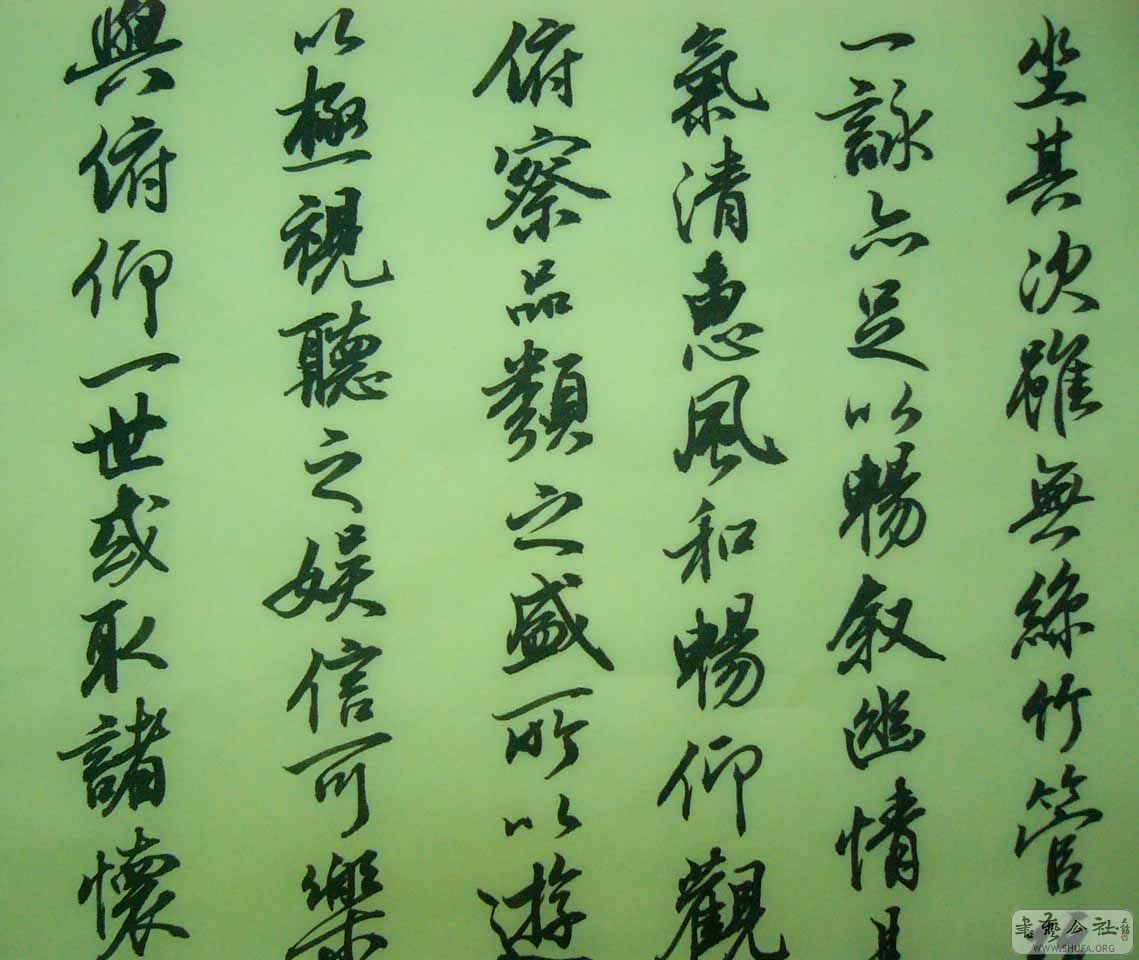 坐其次雖無絲竹管
一詠亦足以暢叙幽情
氣清惠風和暢仰觀
俯察品類之盛所以遊
以極視聽之娱信可樂
與俯仰一世或取諸懷
書藝公社
WWW.SHUFA.ORG